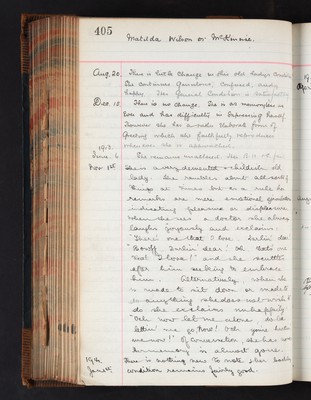 405
Matilda Wilson or McKinnie.
Aug. 20. There is little change in this old lady's condition
She continues garrulous, confused, and
happy. The General Condition is satisfactory
Dec. 12. There is no change. She is as meaningless as
ever and has difficulty in expressing herself
However she has a stock form of
greeting which she faithfully reproduces
1913. whenever she is approached.
June. 6. She remains unaltered.
Nov 1st She is a very demented & childish old
lady. She rambles about all sorts of
things at times but as a rule her
remarks are mere emotional
indicating pleasure or displeasure.
When she sees a doctor she always
laughs joyously and exclaims.
"There's one that I love, darlin' dear
darlin' dear' Oh that's me
that I love!" and she scuttles
after him seeking to embrace
him. Alternatively when she
is made to sit down or made to
do anything she does not wish to
do she exclaims unhappily
"Och now let me alone
lettin' me go, now! Och your
me now!" Of conversation she has none
her memory is almost gone.
1914. There is nothing new to note & her bodily
Jan condition remains fairly good.